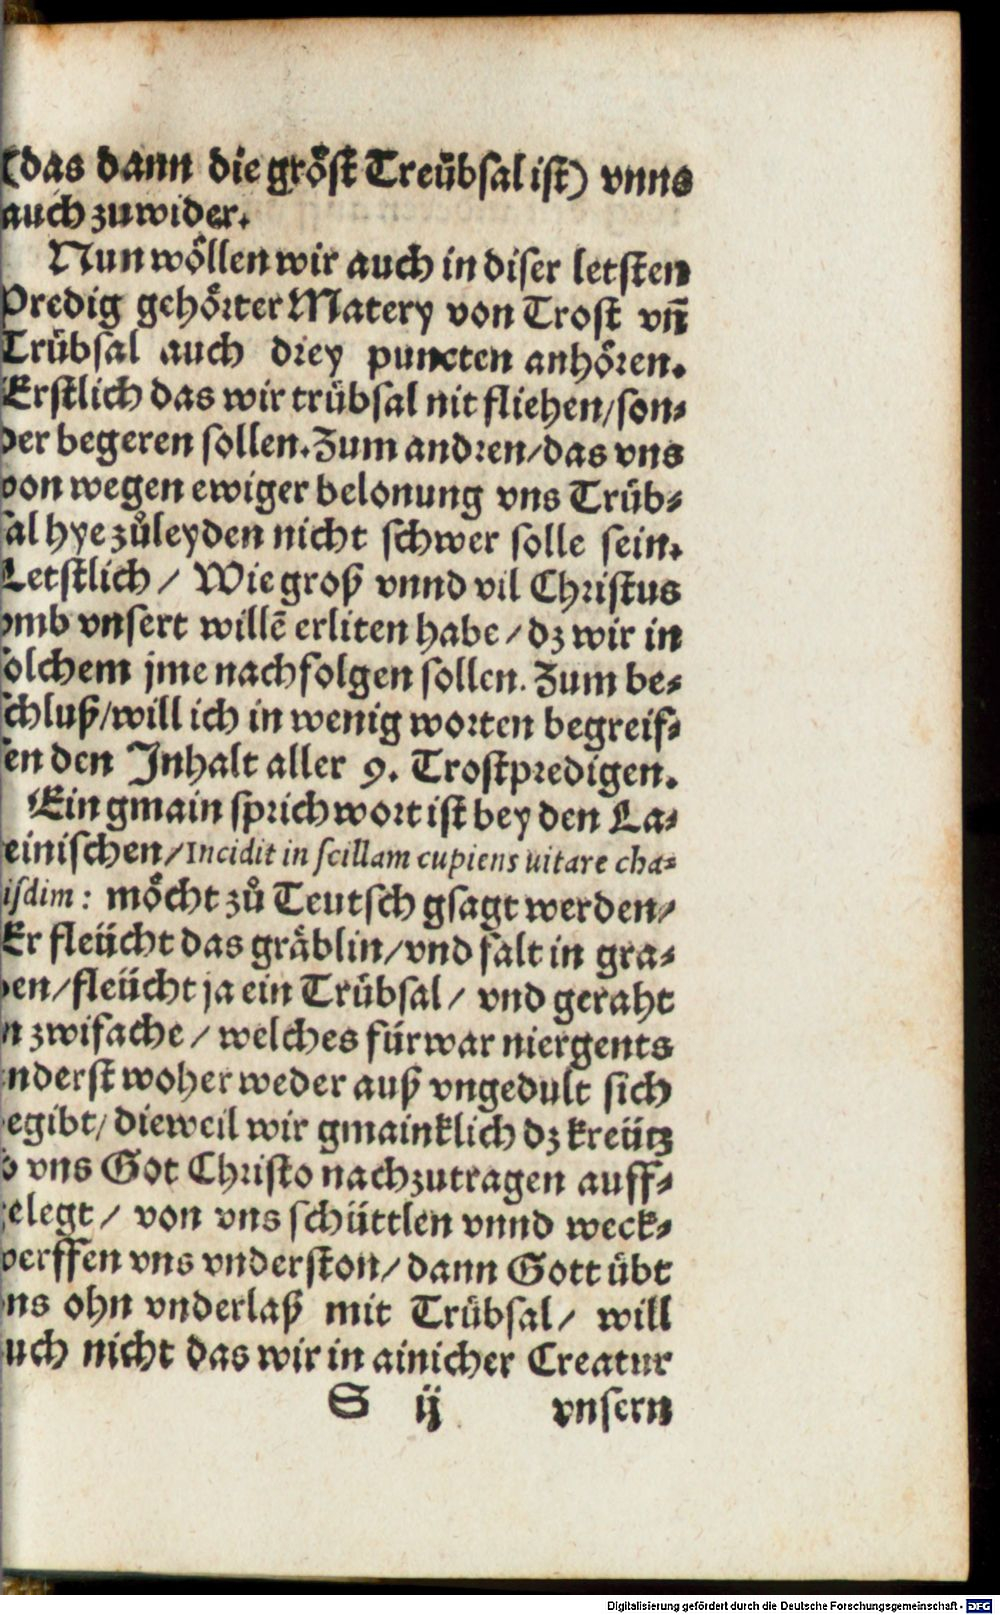 (das dann die gröst Treübsal ist) vnns
auch zuwider.
Nun wöllen wir auch in diser letsten
Predig gehörter Matery von Trost vn̄
Trübsal auch drey puncten anhören.
Erstlich das wir trübsal nit fliehen/son⸗
der begeren sollen. Zum andren/das vns
von wegen ewiger belonung vns Trüb⸗
sal hye zůleyden nicht schwer solle sein.
Letstlich / Wie groß vnnd vil Christus
vmb vnsert willē erliten habe / dz wir in
solchem jme nachfolgen sollen. Zum be⸗
schluß/will ich in wenig worten begreif⸗
fen den Inhalt aller 9. Trostpredigen.
Ein gmain sprichwort ist bey den La⸗
einischen/Incidit in scillam cupiens uitare cha⸗
isdim: möcht zů Teutsch gsagt werden/
Er fleücht das gräblin/vnd falt in gra⸗
en/fleücht ja ein Trübsal / vnd geraht
n zwifache / welches fürwar niergents
nderst woher weder auß vngedult sich
egibt/ dieweil wir gmainklich dz kreütz
o vns Got Christo nachzutragen auff⸗
elegt / von vns schüttlen vnnd weck⸗
erffen vns vnderston/ dann Gott übt
ns ohn vnderlaß mit Trübsal/ will
uch nicht das wir in ainicher Creatur
S ij vnsern
Digitalisierung gefördert durch die Deutsche Forschungsgemeinschaft - DFG